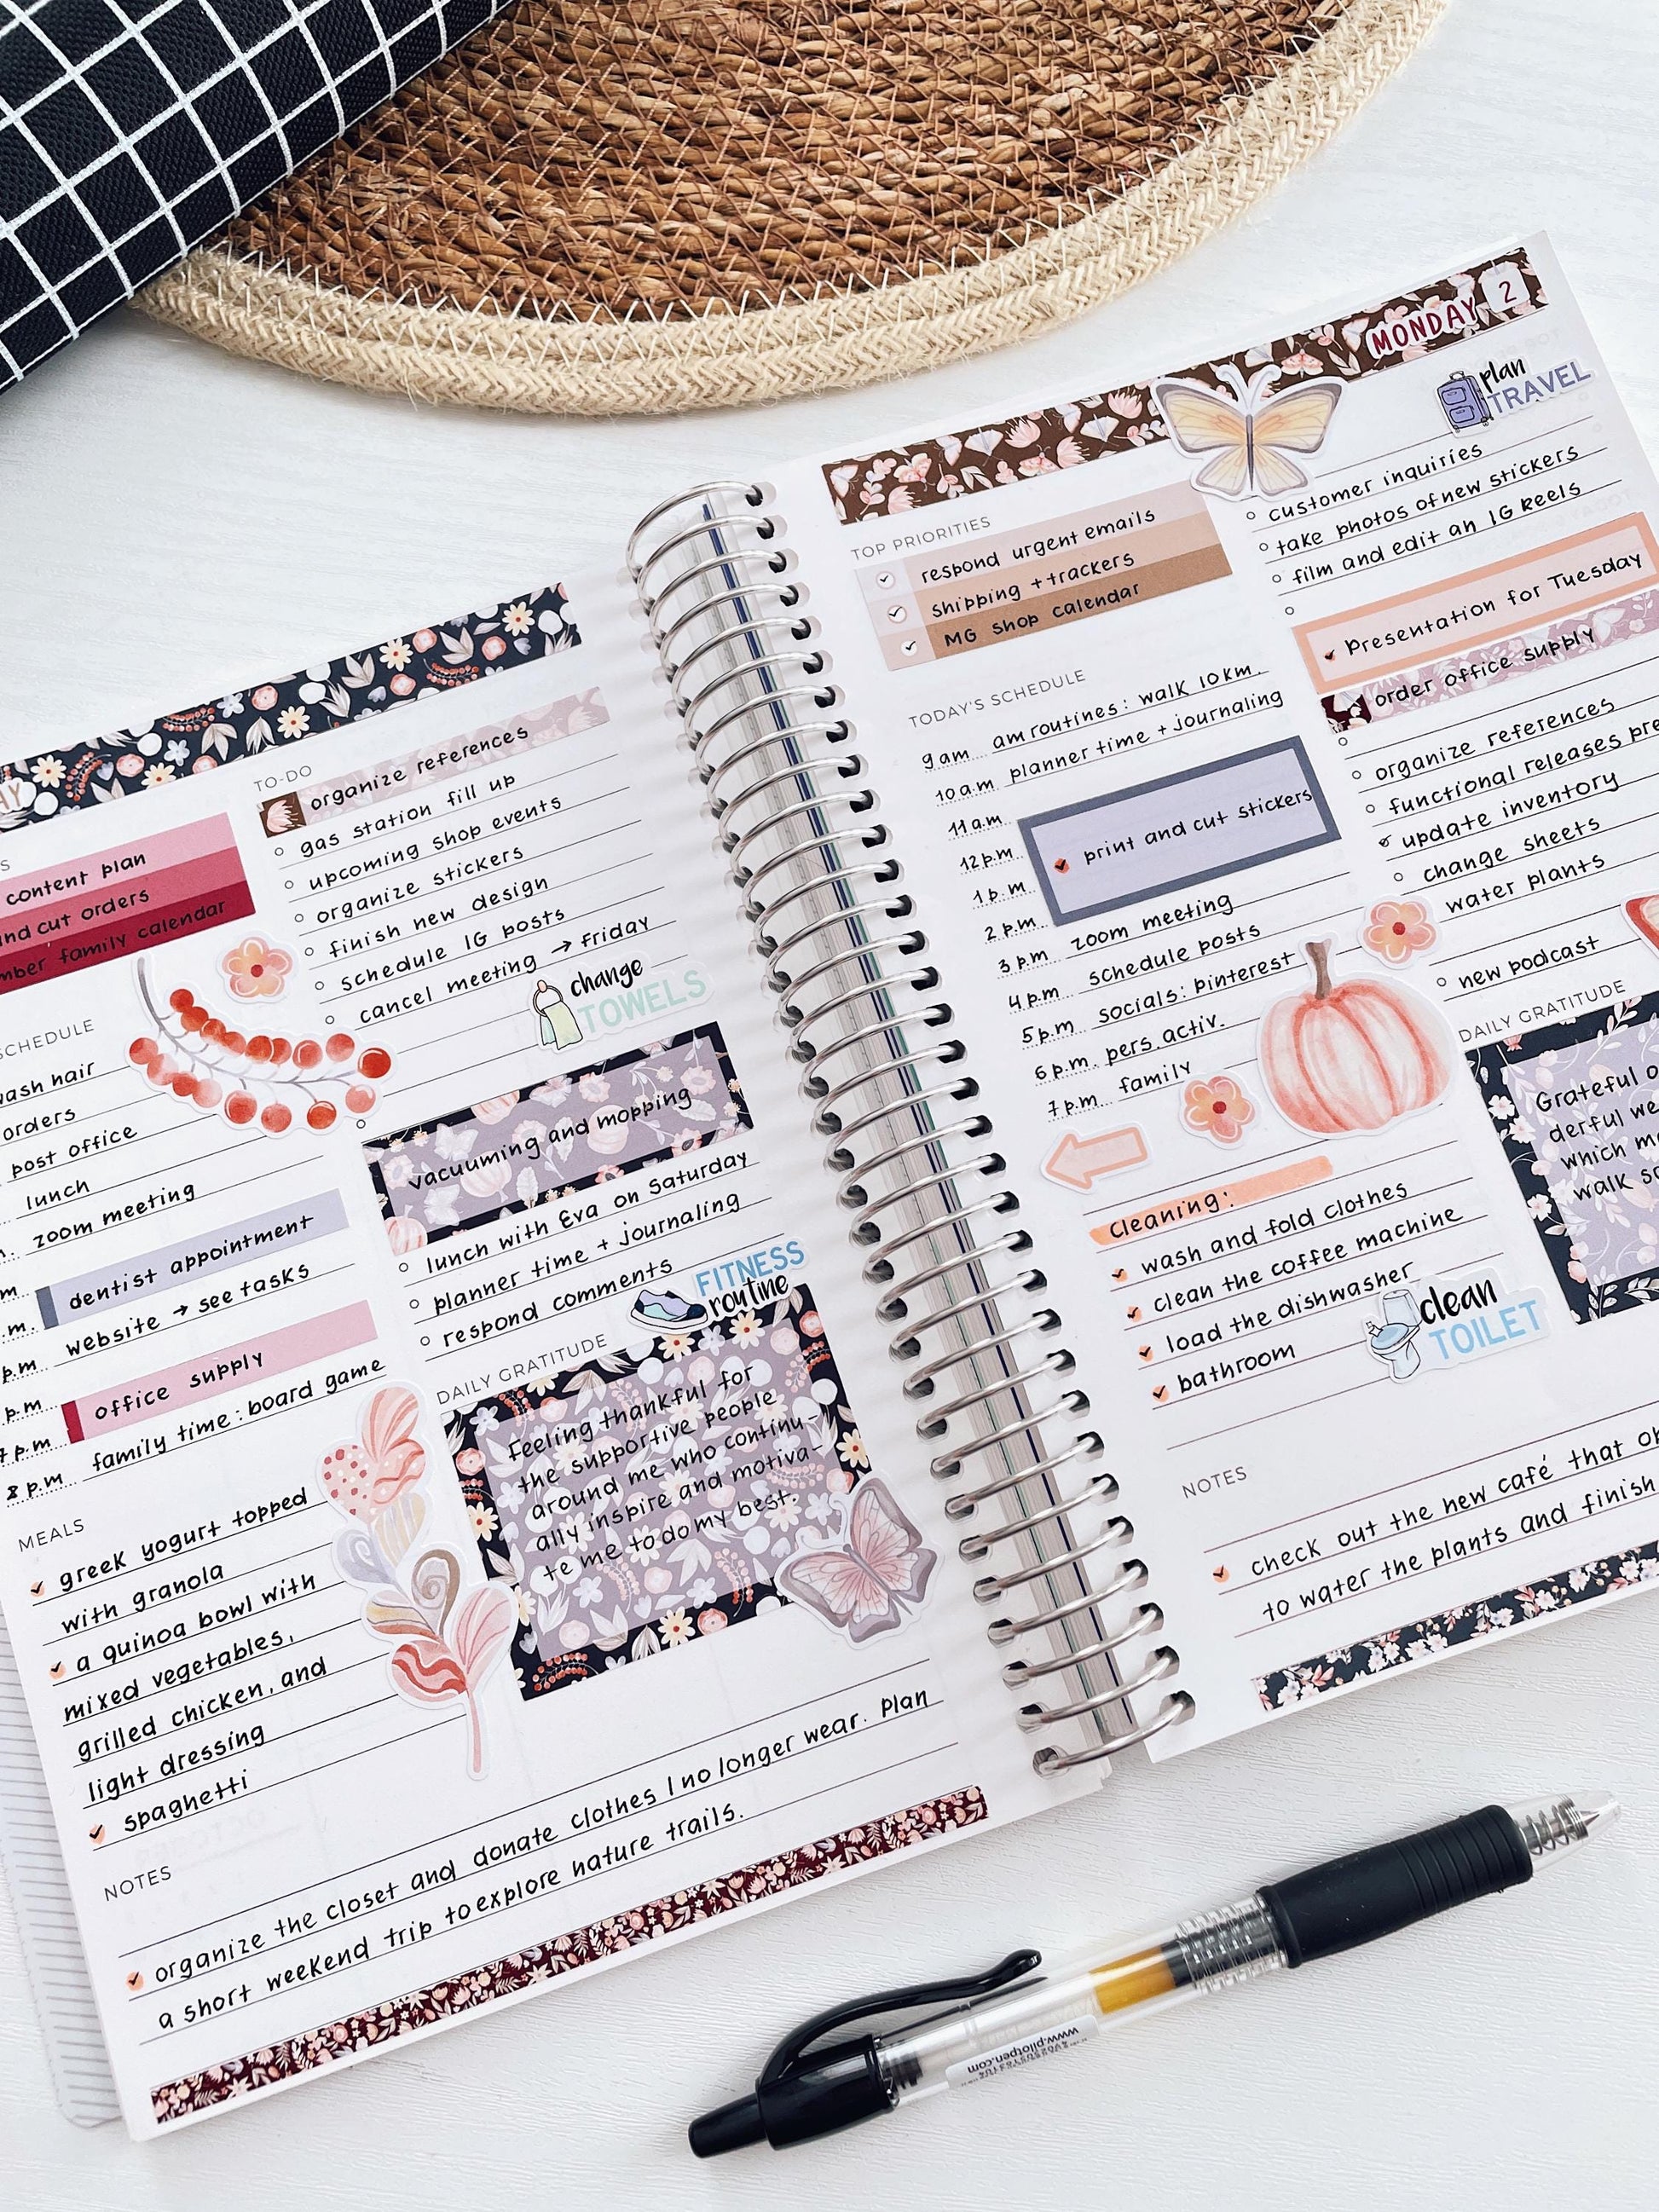 AY
TO-DO
organize references
gas station fill up
upcoming shop events
organize stickers
finish new design
schedule IG posts
cancel meeting → Friday
change
TOWELS
content plan
and cut orders
family calendar
SCHEDULE
wash hair
orders
post office
lunch
zoom meeting
dentist appointment
website → see tasks
p.m
office supply
p.m
family time: board game
8 p.m
vacuuming and mopping
lunch with Eva on Saturday
planner time + journaling
respond comments
FITNESS
routine
DAILY GRATITUDE
Feeling thankful for
the supportive people
around me who continu-
ally inspire and motiva-
te me to do my best.
MEALS
greek yogurt topped
with granola
a quinoa bowl with
mixed vegetables,
grilled chicken, and
light dressing
spaghetti
NOTES
organize the closet and donate clothes I no longer wear. plan
a short weekend trip to explore nature trails.
MONDAY 2
plan
TRAVEL
TOP PRIORITIES
respond urgent emails
shipping + trackers
MG shop calendar
TODAY'S SCHEDULE
9 am am routines: walk 10km.
10 a.m planner time + journaling
11 a.m
12 p.m
print and cut stickers
1 p.m
2 p.m
zoom meeting
3 p.m
schedule posts
4 p.m
socials: pinterest
5 p.m
pers. activ.
6 p.m.
family
7 p.m
cleaning:
wash and fold clothes
clean the coffee machine
load the dishwasher
bathroom
clean
TOILET
customer inquiries
take photos of new stickers
film and edit an IG Reels
presentation for Tuesday
order office supply
organize references
functional releases pre
update inventory
change sheets
water plants
new podcast
DAILY GRATITUDE
Grateful
derful we
which
walk
NOTES
check out the new café that
to water the plants and finish
www.pilotpen.com